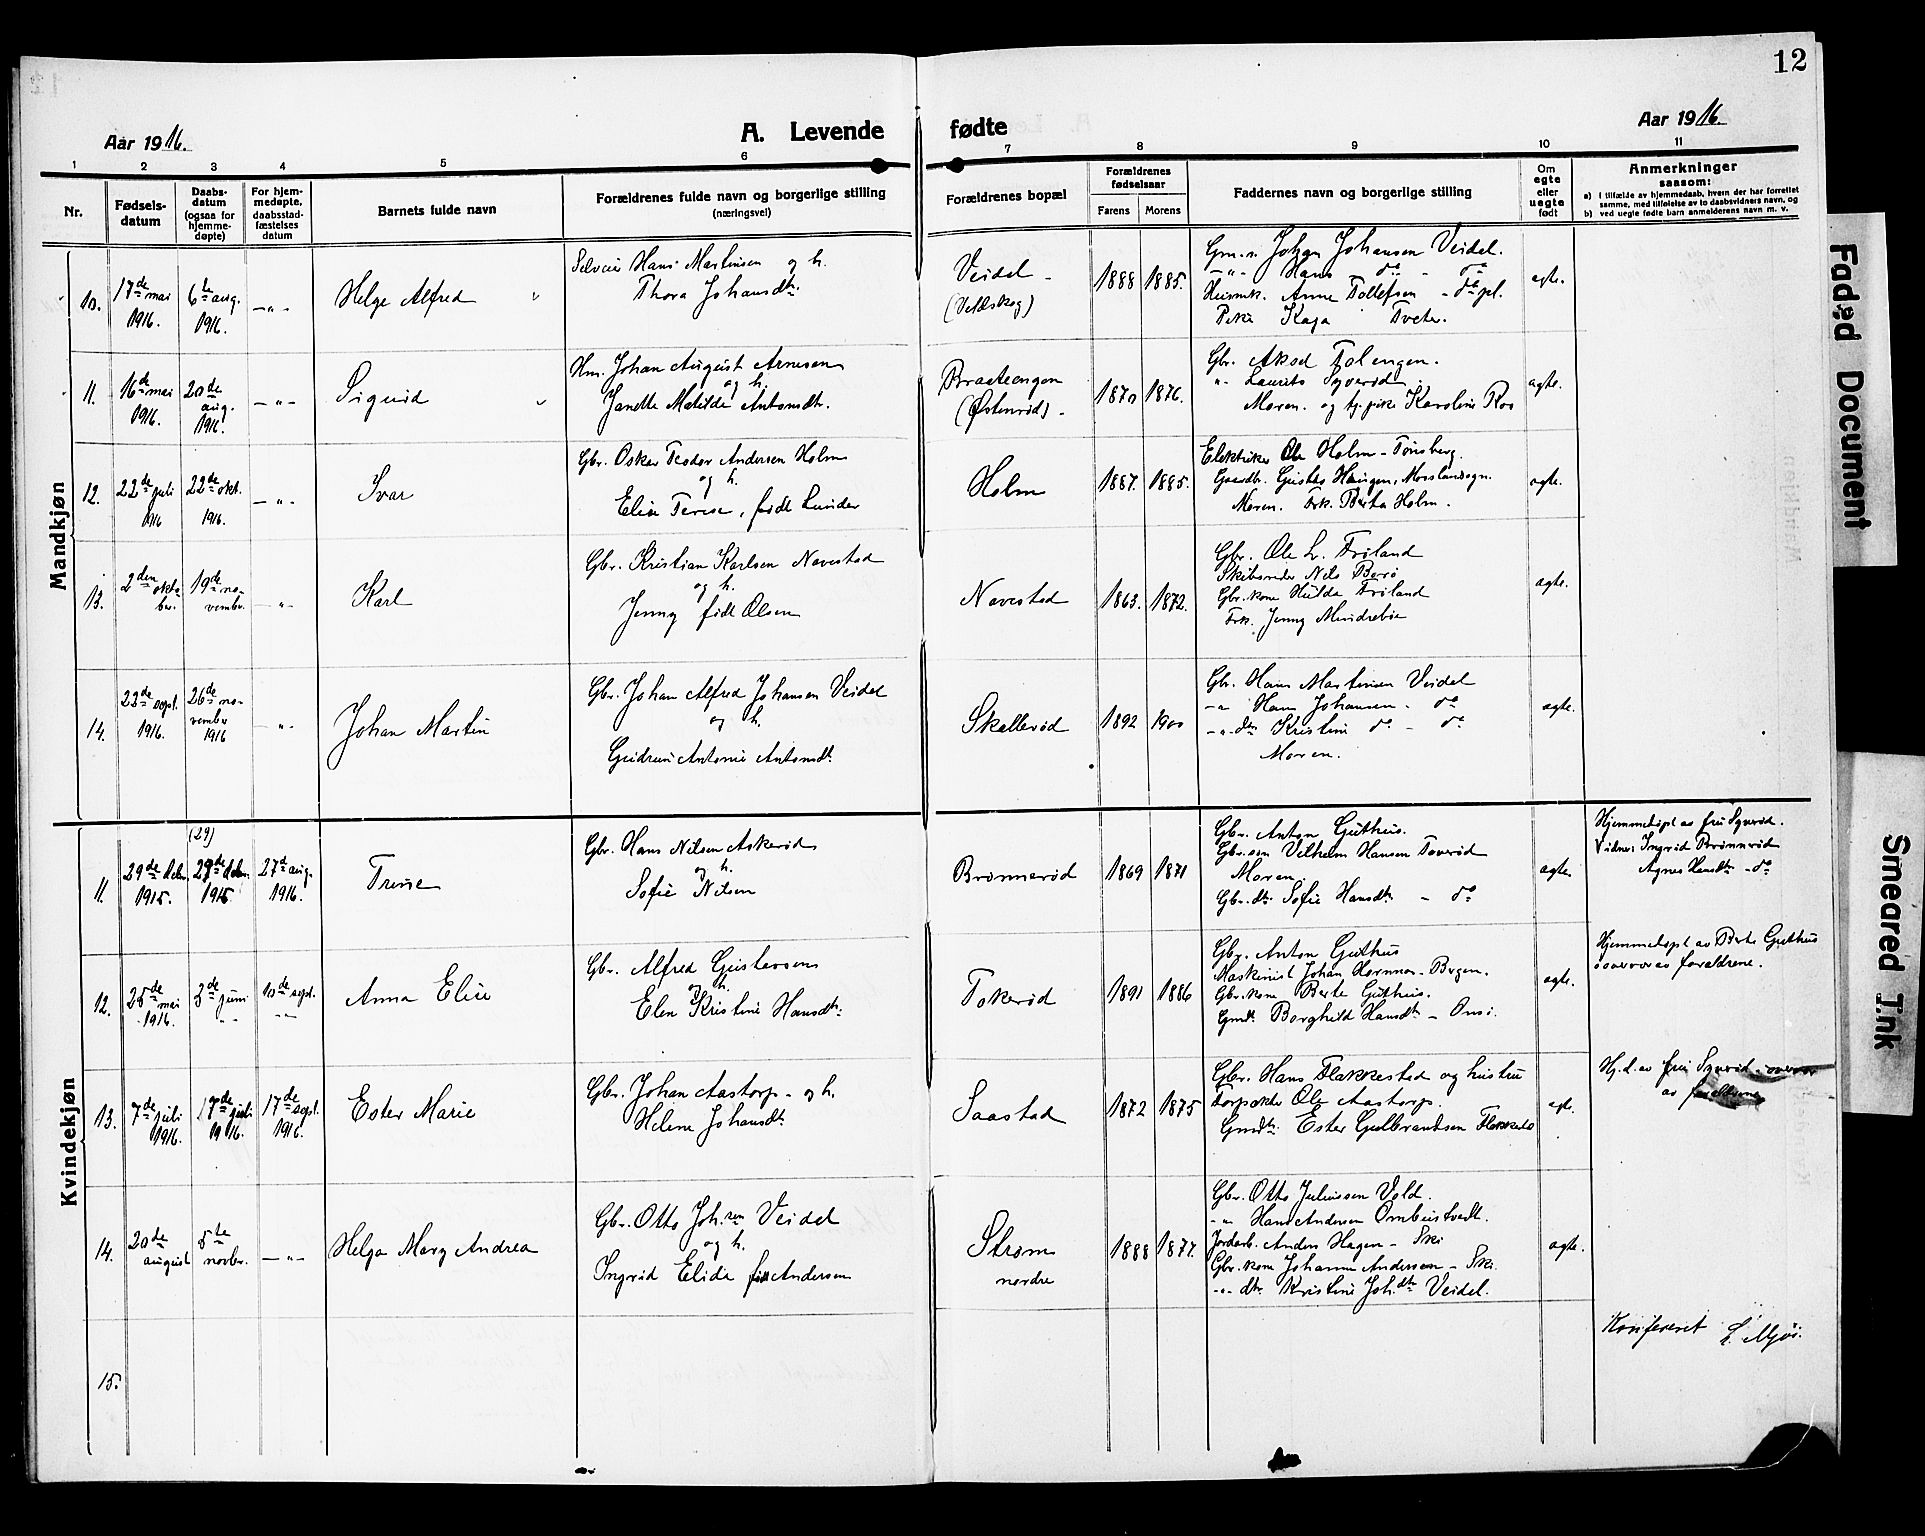 12
Aar 1916.
A. Levende fødte
Aar 1916.
1 2 3 4 5 6 7 8 9 10 11
Nr.
Fødsels-
datum
Daabs-
datum
(ogsaa for
hjemme-
døpte)
For hjem-
medøpte,
daabsstad-
fæstelses
datum
Barnets fulde navn
Forældrenes fulde navn og borgerlige stilling
(næringsvei)
Forældrenes bopæl
Forældrenes
fødselsaar
Farens Morens
Faddernes navn og borgerlige stilling
Om
egte
eller
uegte
født
Anmerkninger
saasom:
a) i tilfælde av hjemmedaab, hvem der har forrettet
samme, med tilføielse av to daabsvidners navn, og
b) ved uegte fødte barn anmelderens navn m. v.
Mandkjøn
10.
17de mai
1916.
6te aug.
1916.
—"—
Helge Alfred
Hans Martinsen og h.
Thora Johansdt.
Veidal
1888 1885.
Gm. s. Johan Johansen Veidal.
—"— Hans do - do
Anne Tollefsen - do pl.
Pike Kaja Tveter.
egte.
11.
16de mai
1916.
20de
aug.
1916.
—"—
Sigurd
Hm. Johan August Arnesen
og h.
Janette Matilde Antonsdt.
Braateengen
(Østenrød).
1870 1876.
Gbr. Aksel Folengen.
" Laurits Syverød
Moren. og tj. pike Karoline Roo
egte.
12.
22de juli
1916
22de okt.
1916.
—"—
Ivar
Gbr. Oskar Teodor Andersen Holm
og h.
Elise Terese, født Lunder
Holm
1887. 1885.
Elektriker Ole Holm - Tønsberg.
Gaardbr. Gustav Haugen,
Moren. Frk. Berta Holm.
egte.
13.
2den okto-
ber.
19de no-
vember.
—"—
Karl
Gbr. Kristian Karlsen Navestad
og h.
Jenny født Olsen
Navestad
1863. 1872.
Gbr. Ole L. Friland
Skibsreder Nils Berø
Gbr. kone Hulda Friland
Frk. Jenny
egte.
14.
22de sept.
1916.
26de no-
vember
1916
—"—
Johan Martin
Gbr. Johan Alfred Johansen Veidal
og h.
Gudrun Antonie Antonsdt.
Skallerød
1892 1900
Gbr. Hans Martinsen Veidal
—" Hans Johansen - do
—"— Kristine do - do
Moren.
egte.
Kvindekjøn
11.
29de decbr.
1915.
(29)
29de decbr.
1915.
27d aug.
1916.
Trine
Gbr. Hans Nilsen Askerød
og h.
Sofie Nilsen
Brønnerød
1869 1871
Gbr. Anton Guthus.
Gbr. søn Vilhelm Hansen Toverød
Moren.
Gbr. dt. Sofie Hansdt. - do
egte
Hjemmedøpt av fru Syverød.
Vidner Ingrid Brønnerød
Agnes Hansdt. - do
12.
25de
mai
1916.
3de juni
—"—
10de sept.
—"—
Anna Elise
Gbr. Alfred Gustavsen
og h.
Elen Kristine Hansdt.
Tokerød
1891 1886
Gbr. Anton Guthus
Maskinist Johan Hornnes - Bergen.
Gbr. kone Berte Guthus.
Gmdt. Borghild Hansdt. - Onsø.
egte.
Hjemmedøpt av Berte Guthus
overvær av forældrene.
13.
7de juli
1916.
17de juli
1916.
17de sept.
1916.
Ester Marie
Gbr. Johan Aastorp - og h.
Helene Johansdt.
Saastad
1872 1875
Gbr. Hans Flakkestad og hustru
Ole Aastorp.
Gmdt. Ester Gulbrandsen Flakkestad
egte.
Hj. d. av fru Syverød - overvær
av forældrene
14.
20de
august
5te
novbr.
—"—
Helga Mary Andrea
Gbr. Otto Joh.sen Veidal
og h.
Ingrid Elida født Andersen
Strøm
nordre
1888 1877.
Gbr. Otto Juliussen Vold.
—" Hans Andersen
Jordarb. Anders Hagen - Ski
Gbr. kone Johanne Andersen - Ski.
—"— dt. Kristine Joh.dt. Veidal.
egte.
Konfereret L. Mjøs.
15.
Faded Document
Smeared Ink